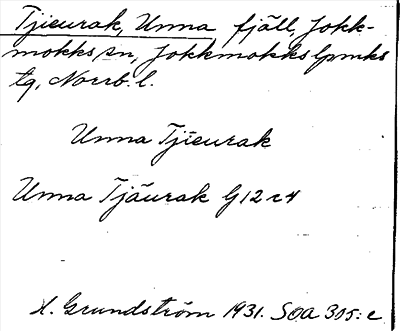 Tjieurak, Unna fjäll, Jokk-
mokks sn, Jokkmokks lpmks
tg, Norrb. l.
Unna Tjieurak
Unna Tjäurak G 12 c 4
H. Grundström 1931. SOA 305: c